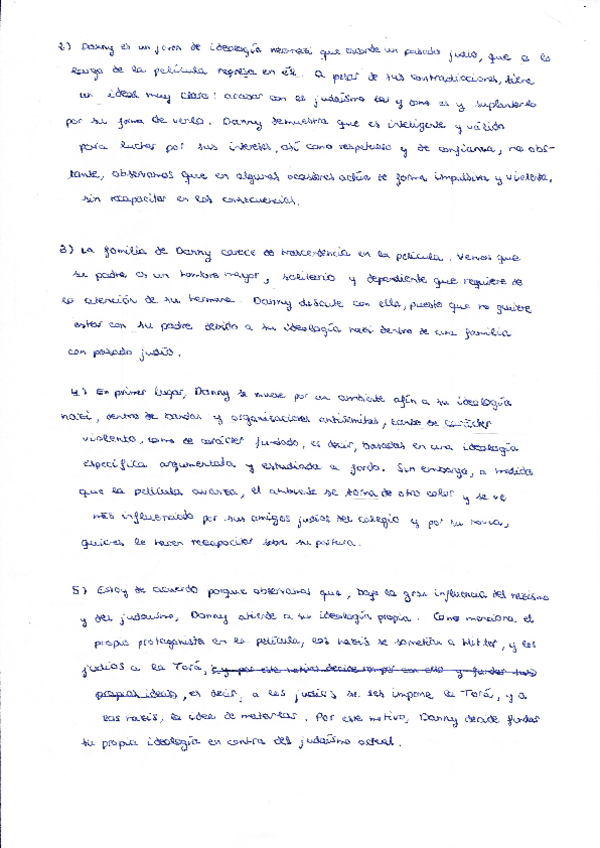 2) Danny es un joven de ideología neonazi que esconde un pasado judío, que a lo
largo de la película regresa en él. A pesar de sus contradicciones, tiene
un ideal muy claro: acabar con el judaísmo tal y como es y suplantarlo
por su forma de verlo. Danny demuestra que es inteligente y válido
para luchar por sus intereses, así como respetuoso y de confianza, no obs-
tante, observamos que en algunas ocasiones actúa de forma impulsiva y violenta,
sin recapacitar en las consecuencias.
3) La familia de Danny carece de trascendencia en la película. Vemos que
su padre es un hombre mayor, solitario y dependiente que requiere de
la atención de su hermana. Danny discute con ella, puesto que no quiere
estar con su padre debido a su ideología nazi dentro de una familia
con pasado judío.
4) En primer lugar, Danny se mueve por un ambiente afín a su ideología
nazi, dentro de bandas y organizaciones antisemitas, tanto de carácter
violento, como de carácter fundado, es decir, basadas en una ideología
específica argumentada y estudiada a fondo. Sin embargo, a medida
que la película avanza, el ambiente se torna de otro color y se ve
más influenciado por sus amigos judíos del colegio y por su novia,
quienes le hacen recapacitar sobre su postura.
5) Estoy de acuerdo porque observamos que, bajo la gran influencia del nazismo
y del judaísmo, Danny atiende a su ideología propia. Como menciona el
propio protagonista en la película, los nazis se sometían a Hitler, y los
judíos a la Torá, y por este motivo decide romper con ello y fundar sus
propios ideales, es decir, a los judíos se les impone la Torá, y a
los nazis, la idea de matarlos. Por este motivo, Danny decide fundar
su propia ideología en contra del judaísmo actual.